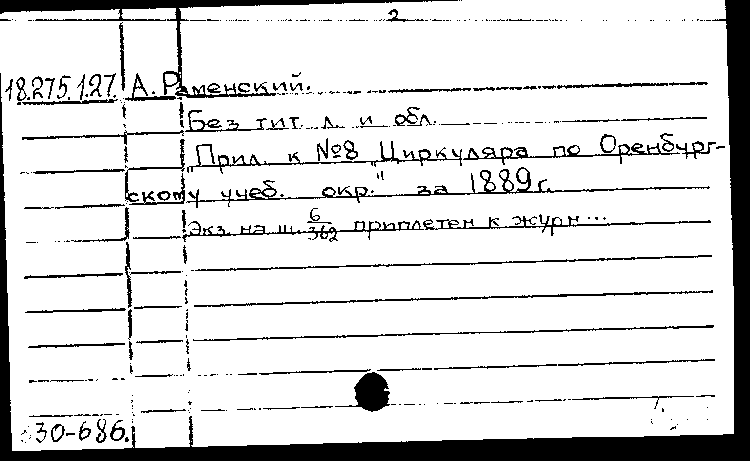 2
18.275.1.27. А. Раменский.
Без тит. л. и обл.
"Прил. к №8 "Циркуляра по Оренбург-
скому учеб. окр." за 1889 г.
Экз. на ш. 6/362 приплетен к журн...
30-686.